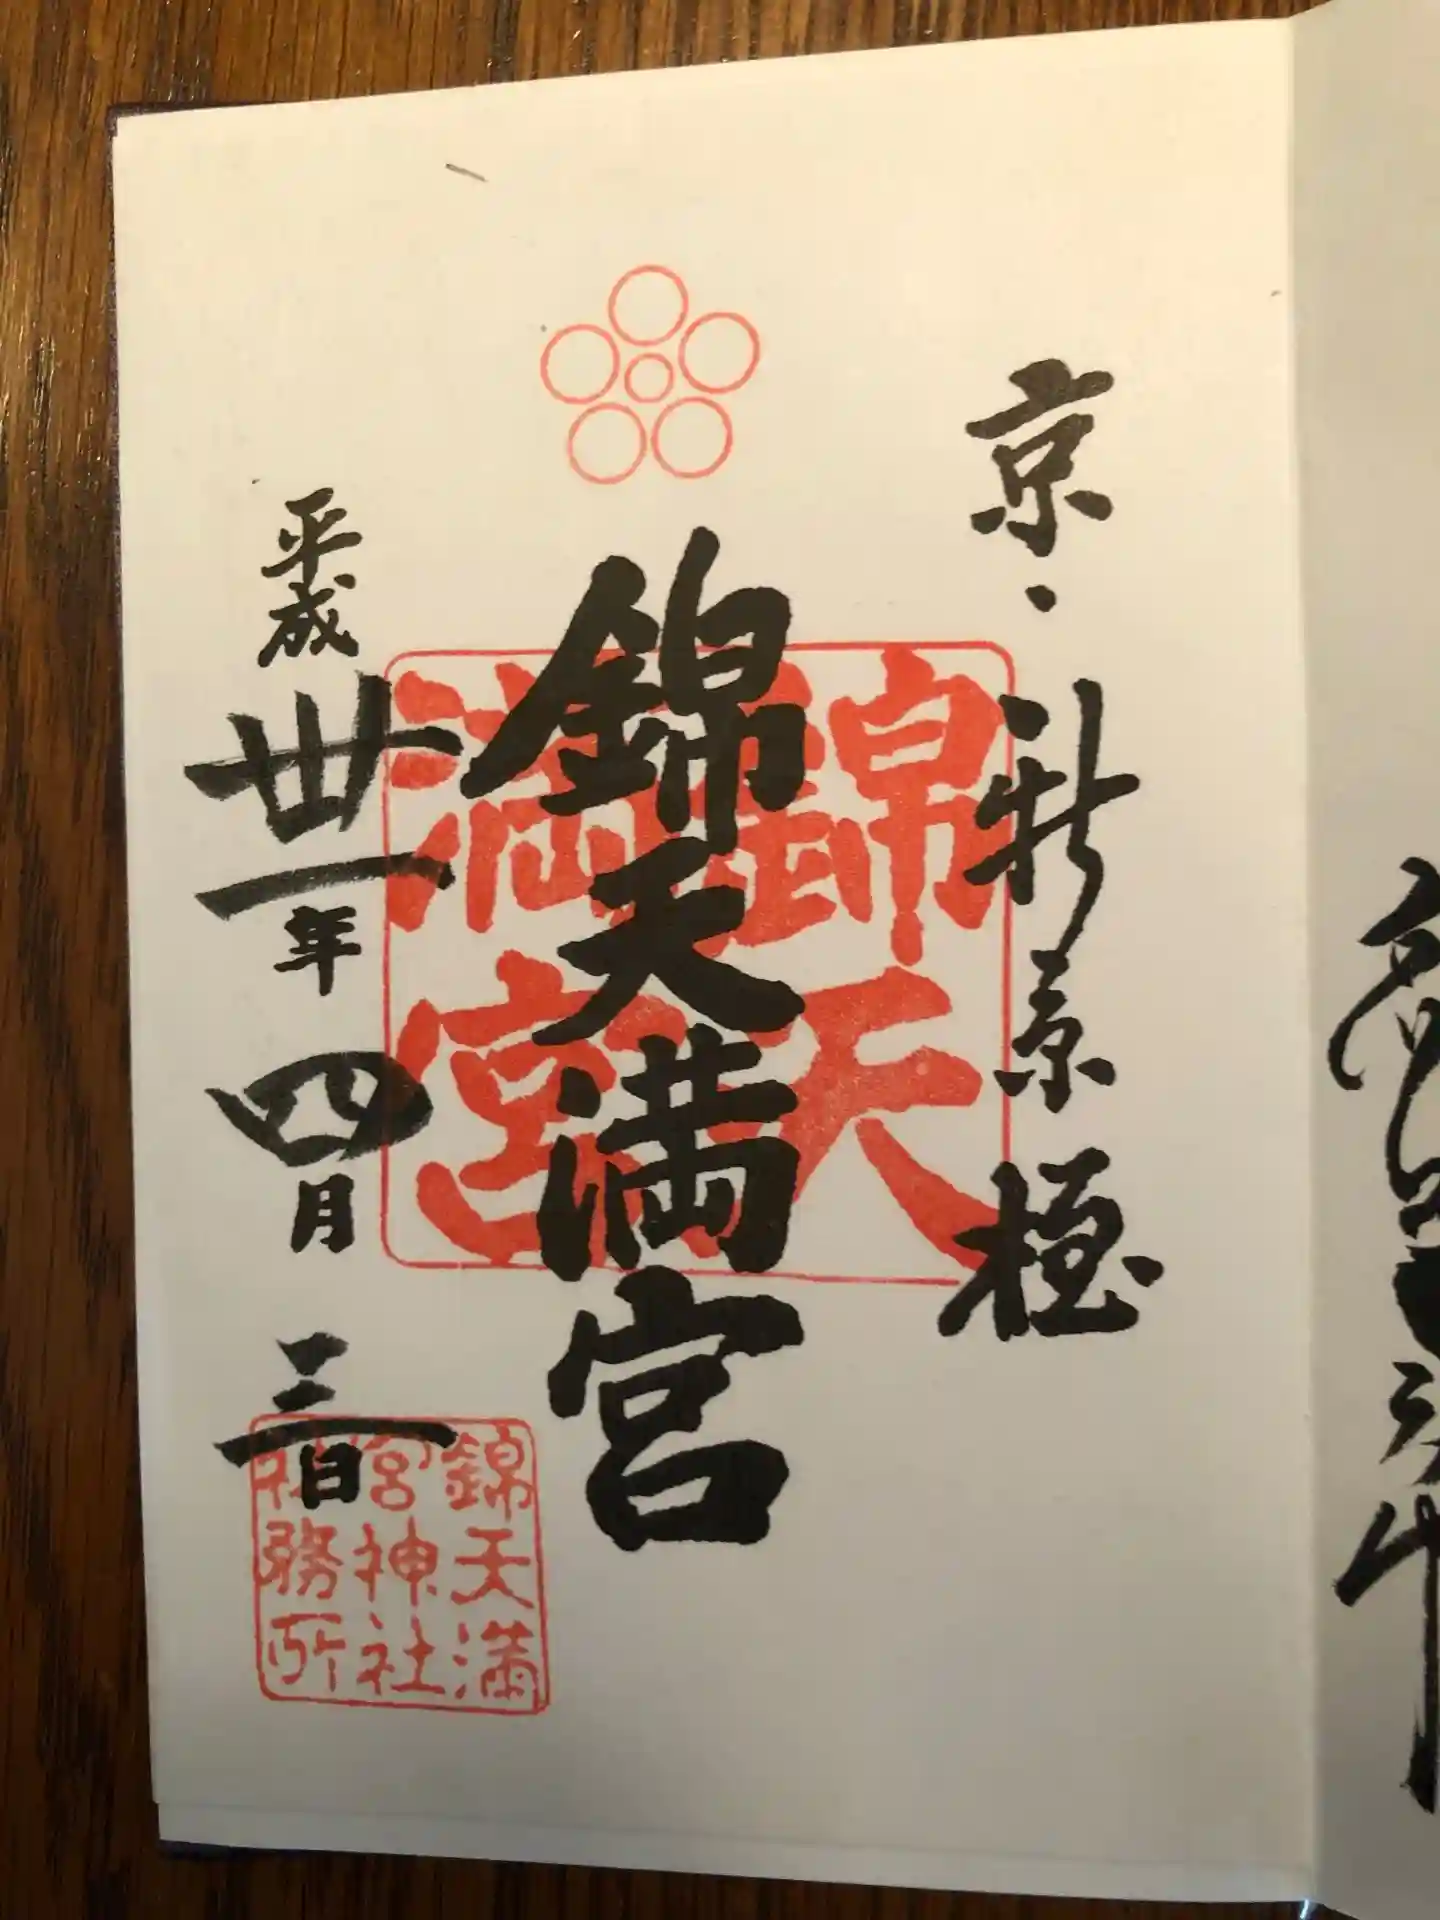 京・新京極
錦天満宮
錦天
満宮
平成卅一年四月三日
錦天満
宮神社
社務所